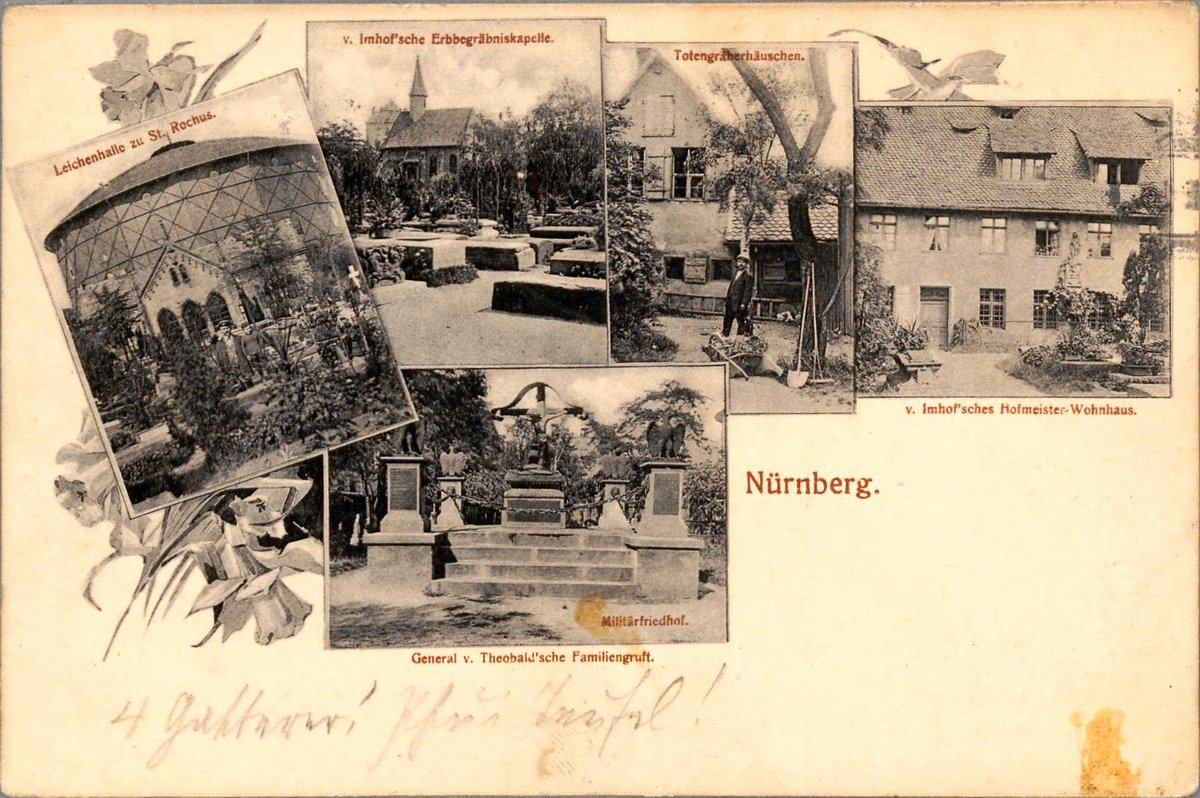 v. Imhof'sche Erbbegräbniskapelle.
Totengräberhäuschen.
Leichenhalle zu St. Rochus.
v. Imhof'sches Hofmeister-Wohnhaus.
Nürnberg.
Militärfriedhof.
General v. Theobald'sche Familiengruft.
4 Gatterer! Pfui Teufel!